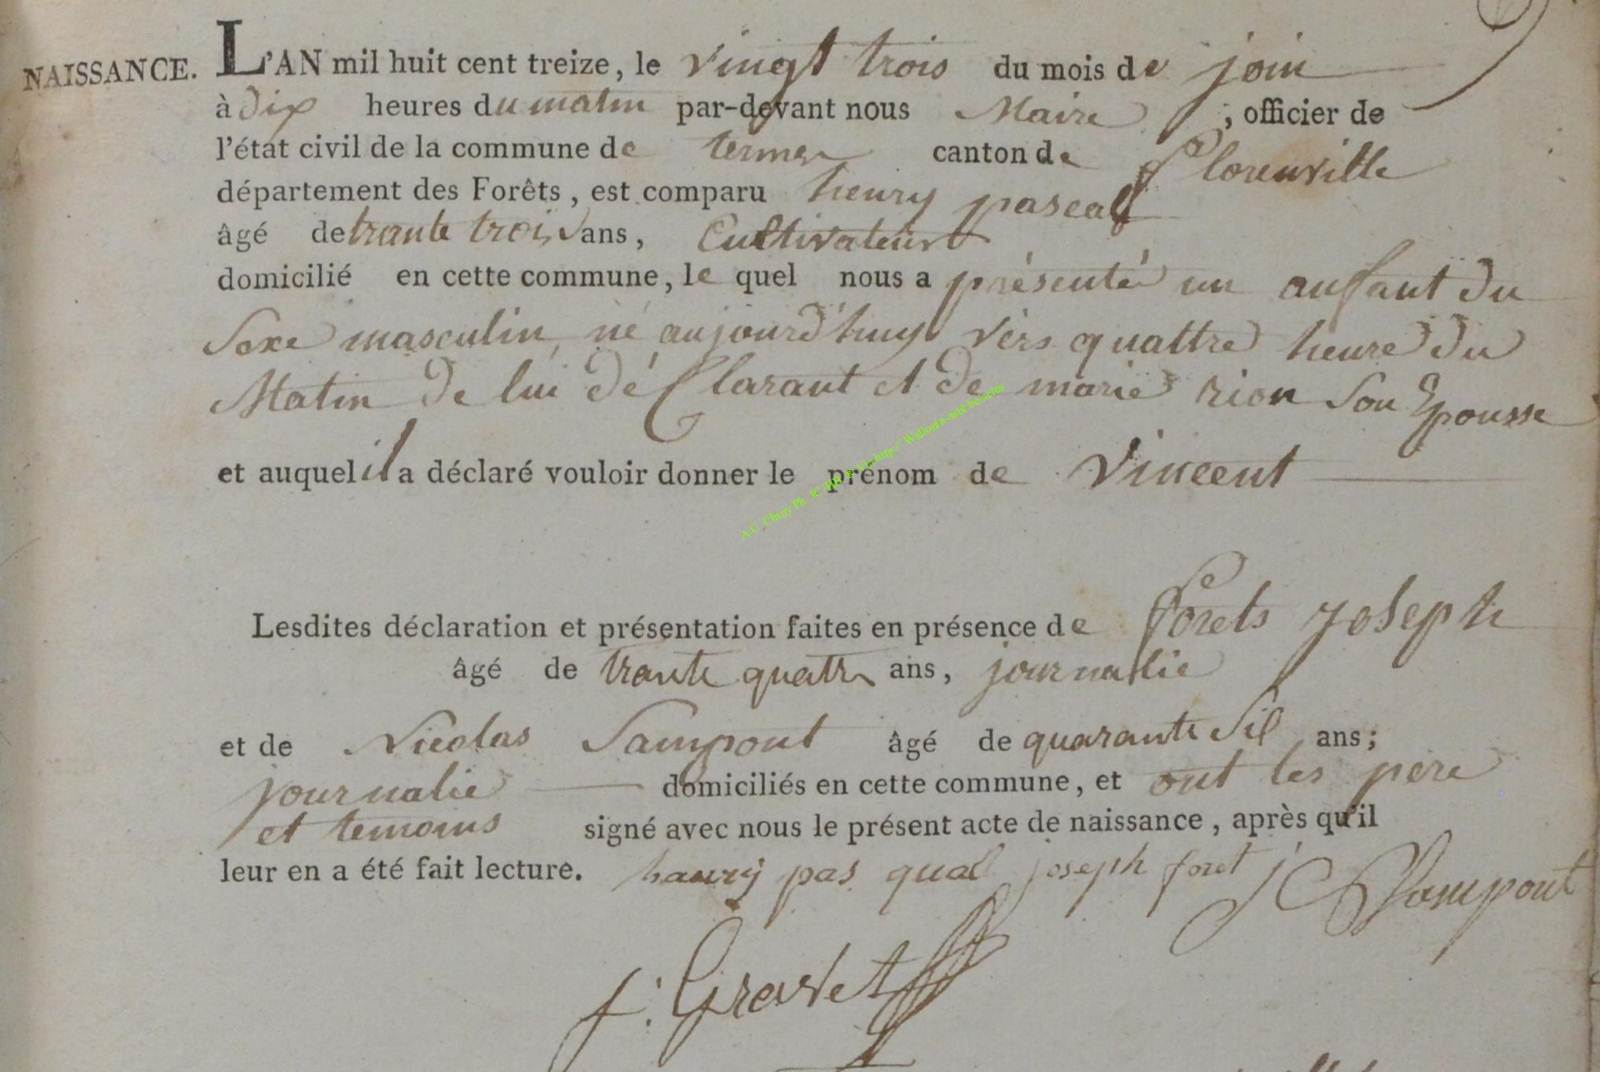 NAISSANCE. L'AN mil huit cent treize, le vingt trois du mois de join
à dix heures du matin par-devant nous Maire, officier de
l'état civil de la commune de termes canton de florenville
département des Forêts, est comparu henry pascal
âgé de trante trois ans, Cultivateur
domicilié en cette commune, le quel nous a présenté un anfant du
Sexe masculin né aujourd'huy vers quattre heure du
Matin de lui déClarant et de marie rion Son Epousse
et auquel il a déclaré vouloir donner le prénom de Vincent
Lesdites déclaration et présentation faites en présence de forets joseph
âgé de trante quatre ans, journalie
et de Nicolas Sampont âgé de quarante Sil ans;
journalie domiciliés en cette commune, et ont les pere
et temoins signé avec nous le présent acte de naissance, après qu'il
leur en a été fait lecture. haury pas qual joseph foret Sampont
f: Gravet